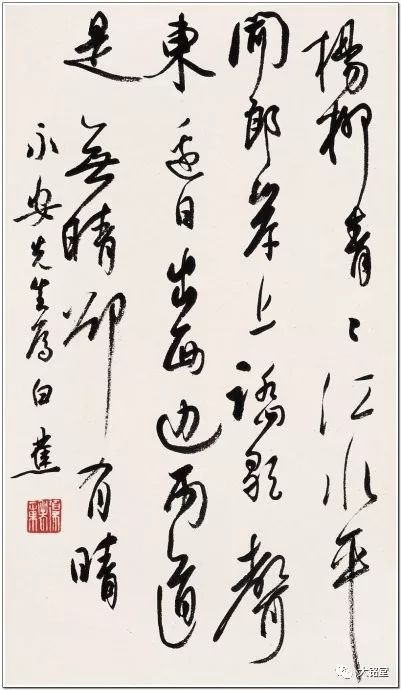 楊柳青〻江水平
聞郎岸上踏歌聲
東邊日出西边雨道
是無晴卻有晴
永安先生属白蕉
大铭堂